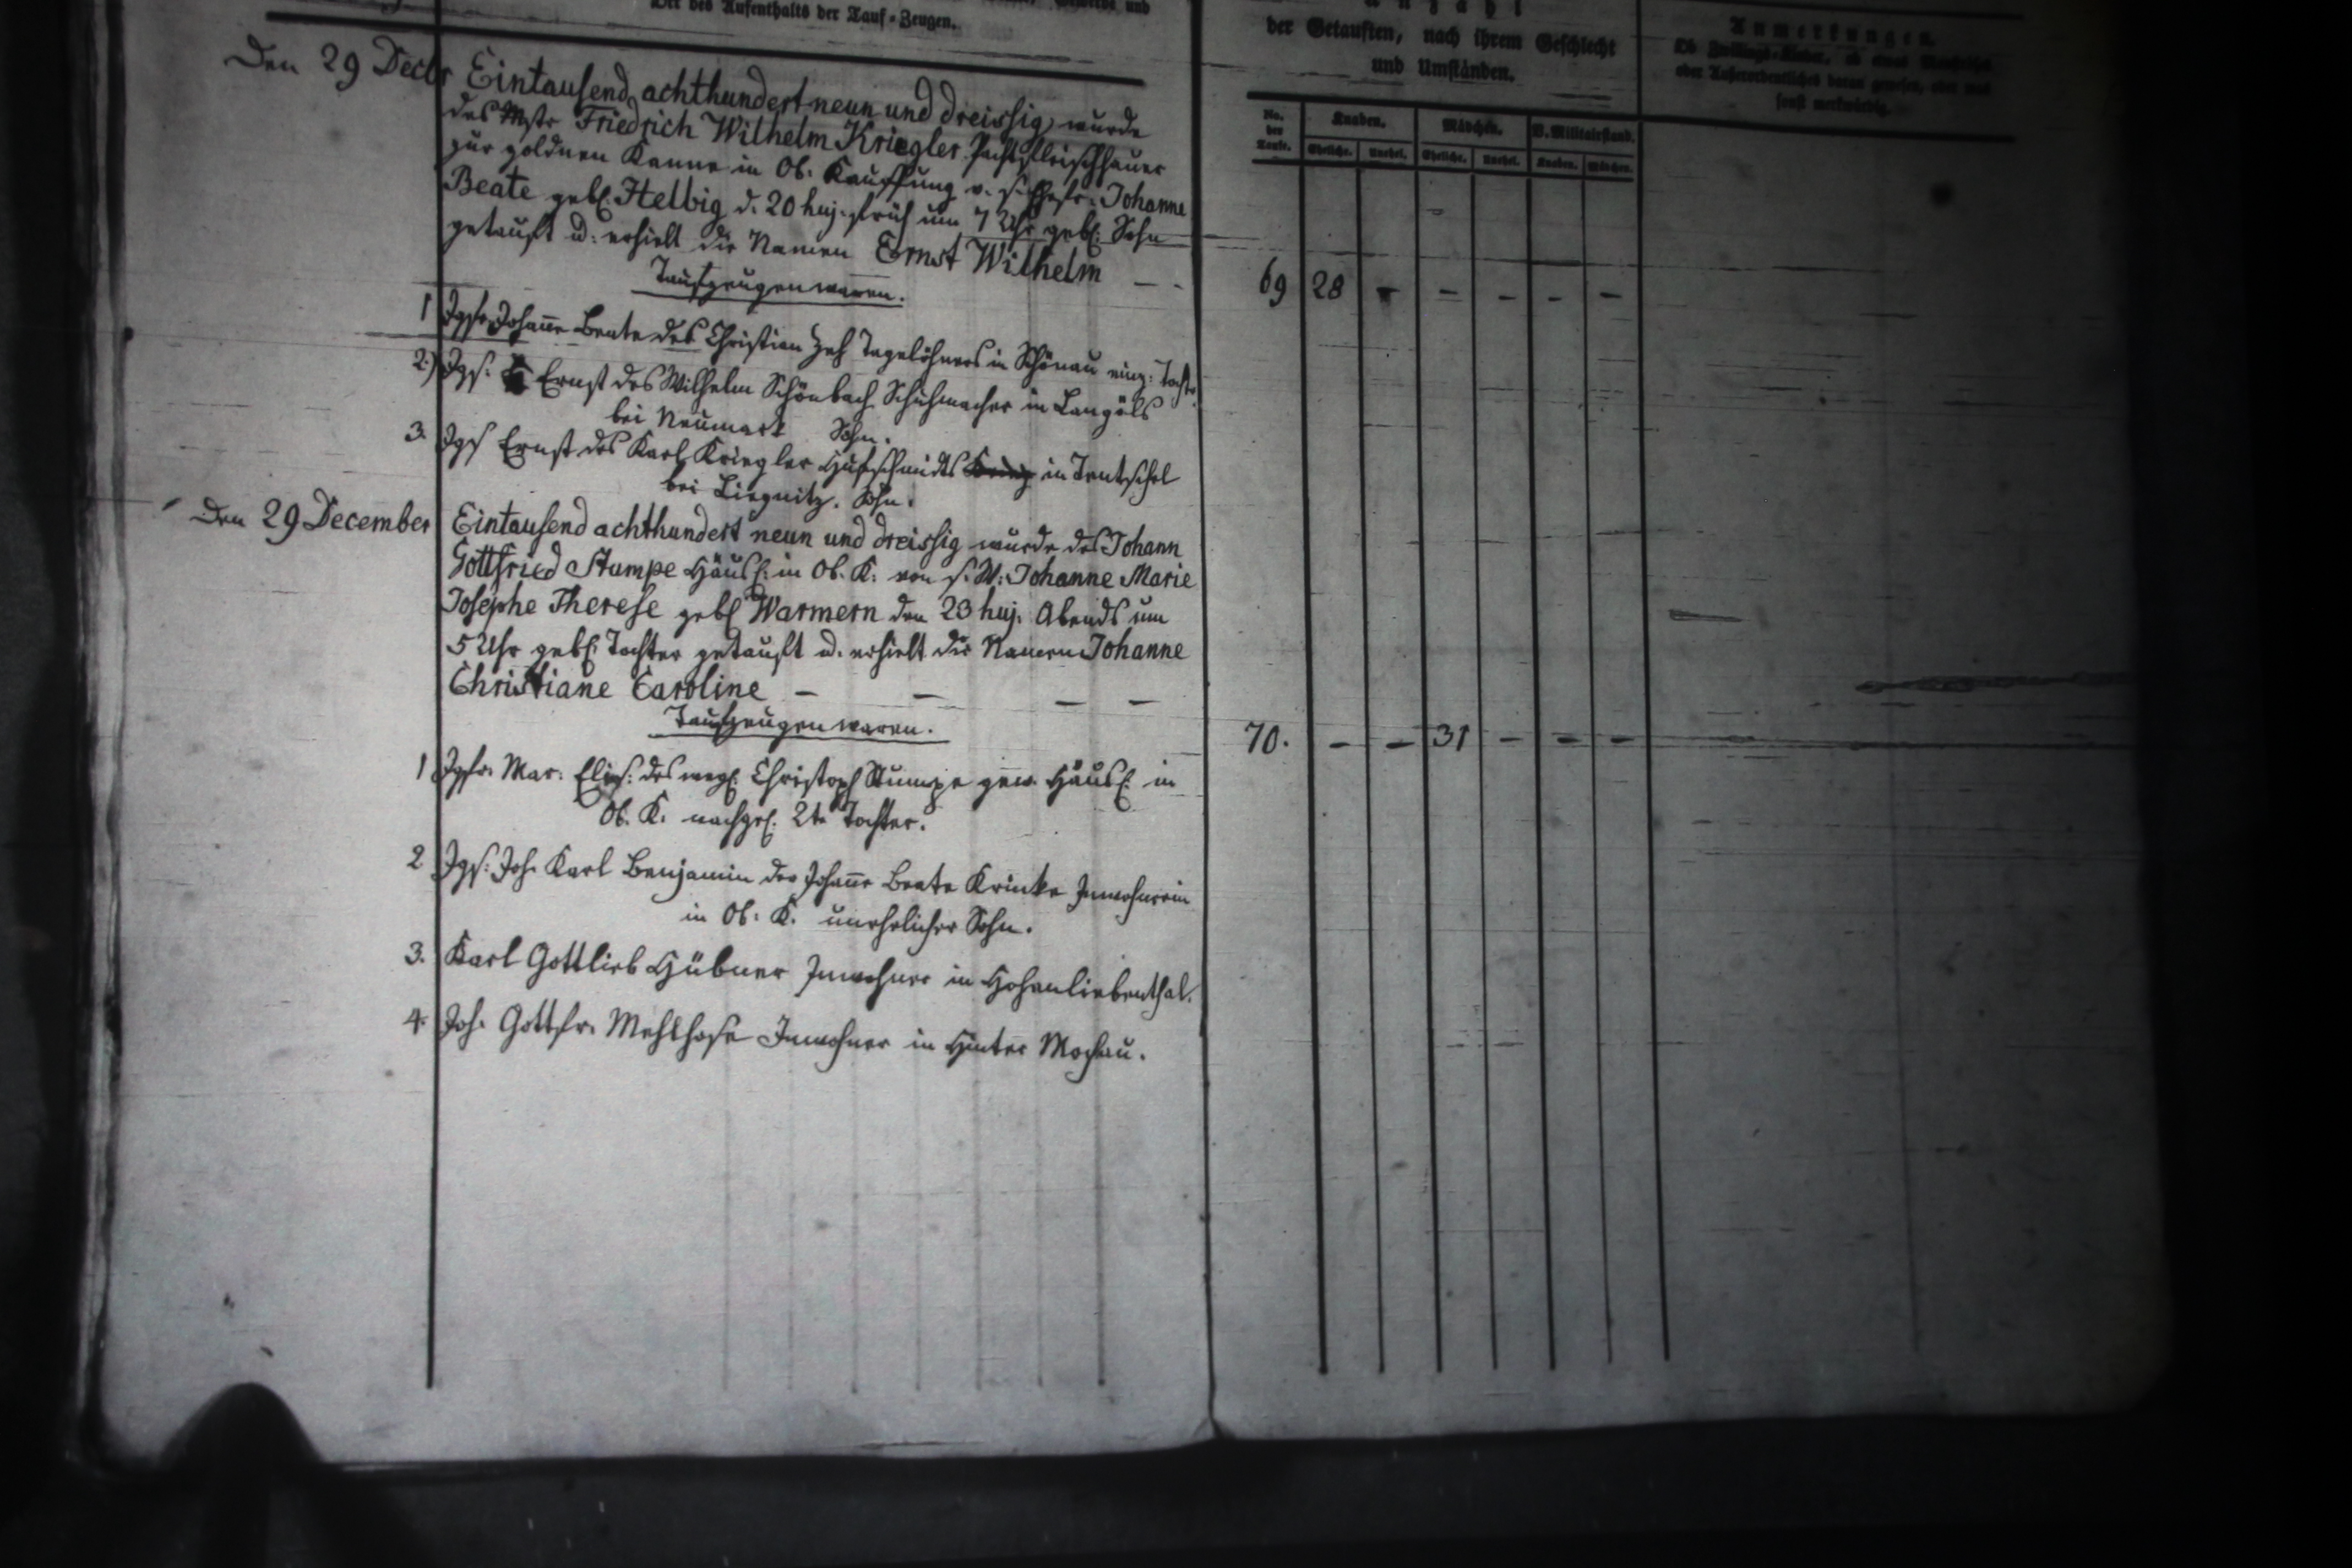 Ort des Aufenthalts der Tauf-Zeugen.
Den 29 Decbr Eintausend achthundert neun und dreissig, wurde
des Mstr Friedrich Wilhelm Kriegler Pachtfleischhauer
zur goldnen Kanne in Ob. Kauffung v. s. Ehefr: Johanne
Beate geb. Helbig d. 20 huj. früh um 7 Uhr geb: Sohn
getauft u: erhielt die Namen Ernst Wilhelm — -
Taufzeugen waren.
1 Jgfr. Johañe Beate des Christian Zeh Tagelöhners in Schönau einz: Tocht.
2.) Jgs: Ernst des Wilhelm Schönbach Schuhmacher in Langöls
bei Neumark Sohn.
3. Jgs Ernst des Karl Kriegler Hufschmidts in Tentschel
bei Liegnitz. Sohn.
Den 29 December Eintausend achthundert neun und dreissig wurde des Johann
Gottfried Stumpe Häusl: in Ob. K. von s. W: Johanne Marie
Josephe Therese geb Warmern den 23 huj. Abends um
5 Uhr geb: Tochter getauft u. erhielt die Namen Johanne
Christiane Caroline — — — —
Taufzeugen waren.
1 Jgfr. Mar: Elis: des weyl. Christoph Stumpe gew. Häusl: in
Ob. K. nachgel. 2te Tochter.
2 Jgs: Joh. Karl Benjamin der Johañe Beate Krinke Inwohnerin
in Ob. K. unehelicher Sohn.
3. Karl Gottlieb Hübner Inwohner in Hohenliebenthal.
4. Joh. Gottfr. Mehlhose Inwohner in Hinter Mochau.
Anzahl
der Getauften, nach ihrem Geschlecht
und Umständen.
No. der Taufe.
Knaben. Mädchen. V. Militairstand.
Eheliche. Unehel. Eheliche. Unehel. Knaben. Mädchen.
69 28 - - - - -
70. - - 31 - - -
Anmerkungen.
Ob Zwillings-Kinder, ob etwas
oder Außerordentliches daran gewesen, oder was
sonst merkwürdig.